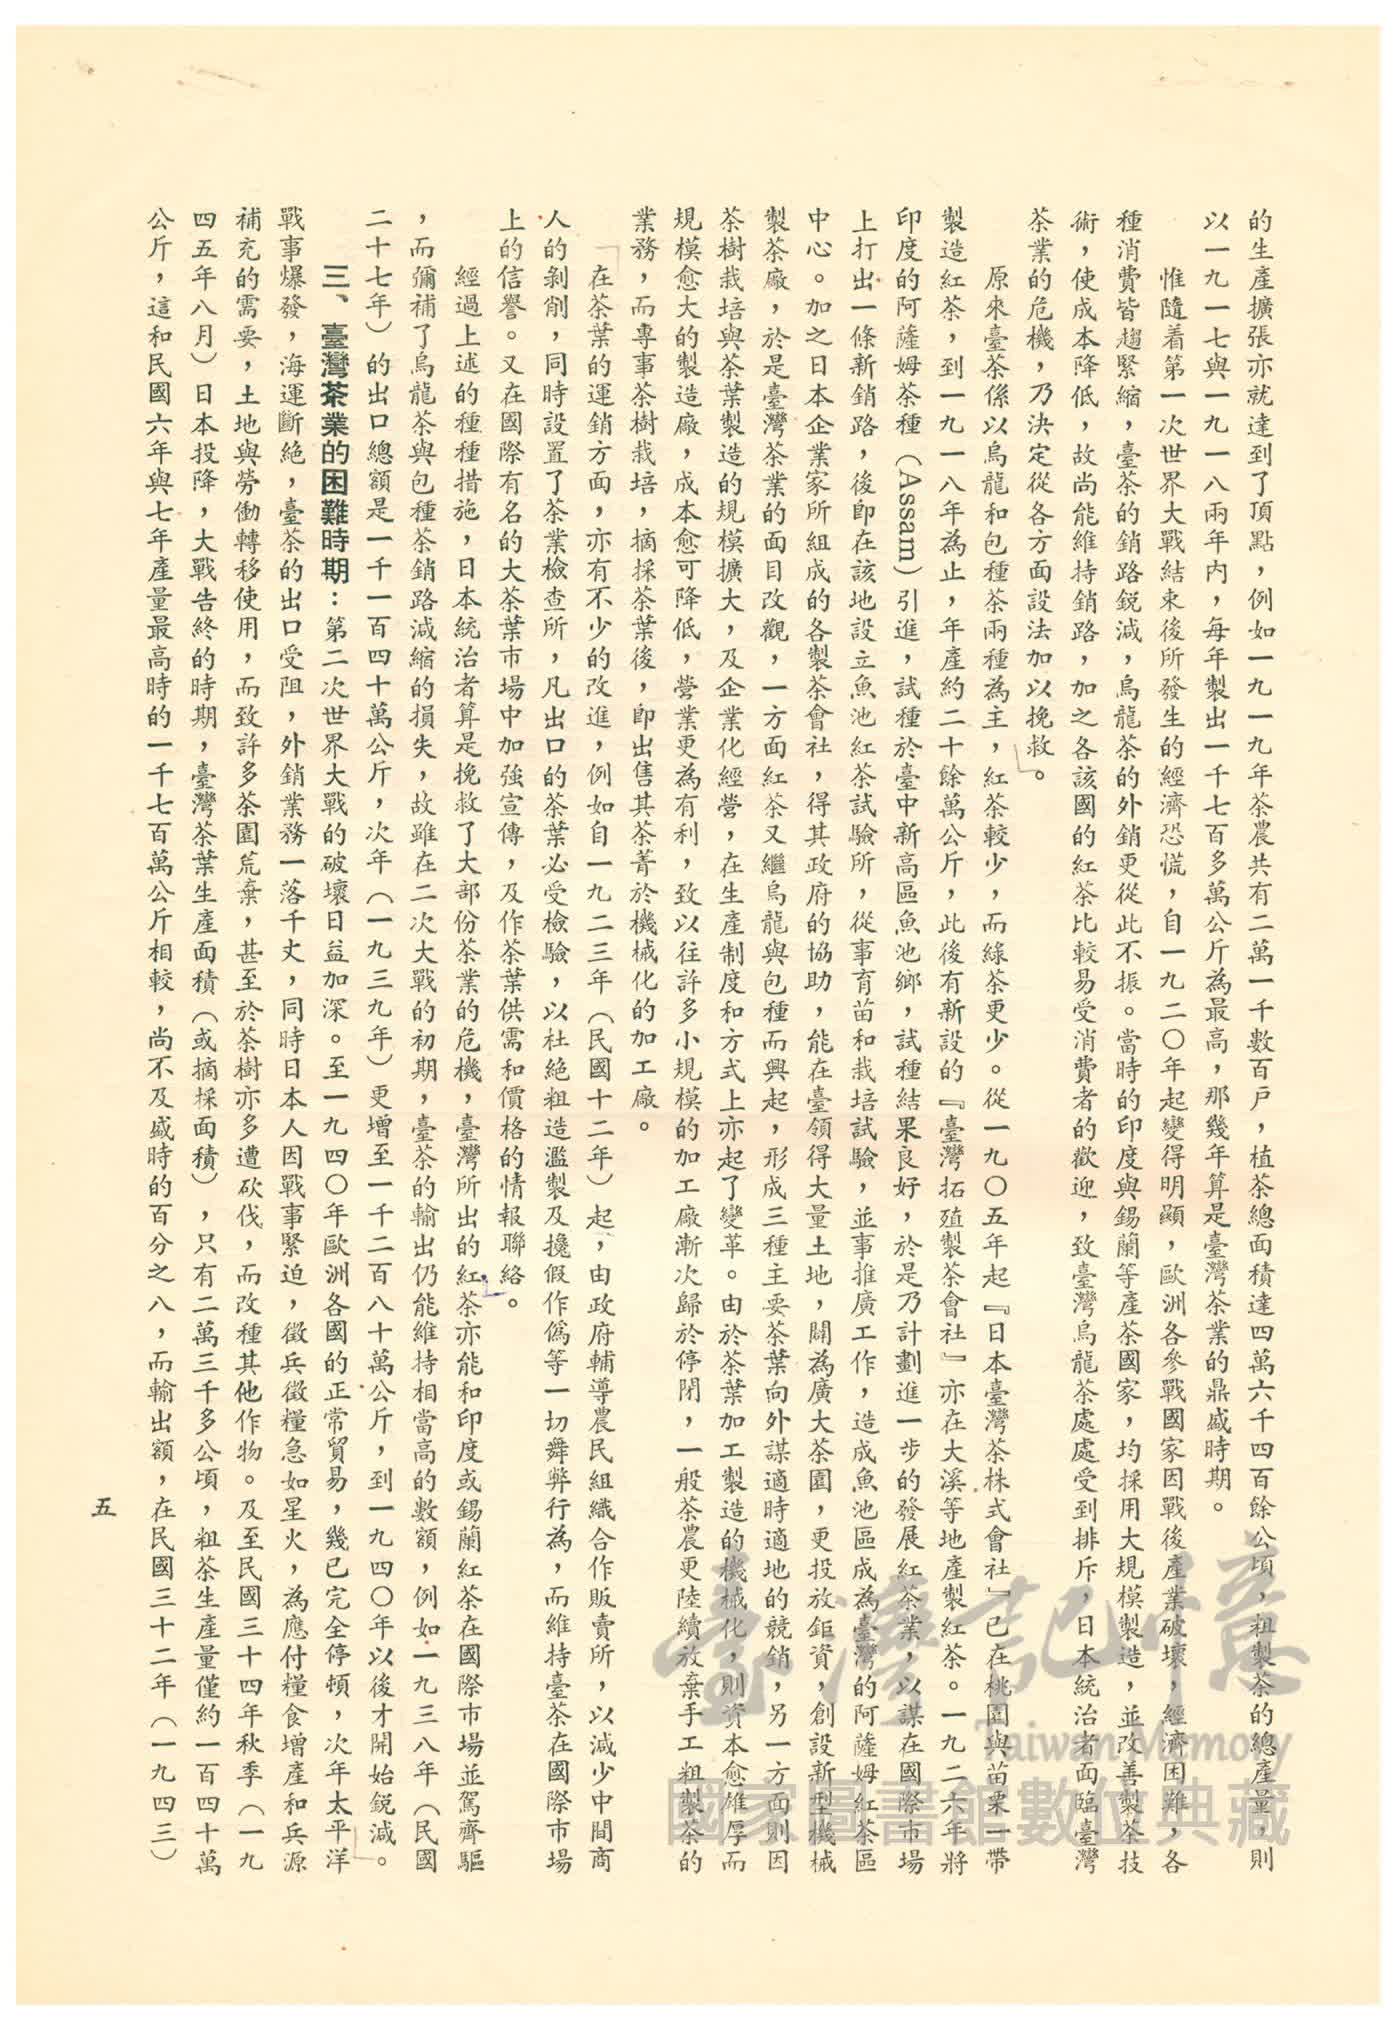 的生產擴張亦就達到了頂點，例如一九一九年茶農共有二萬一千數百戶，植茶總面積達四萬六千四百餘公頃，粗製茶的總產量，則
以一九一七與一九一八兩年內，每年製出一千七百多萬公斤為最高，那幾年算是臺灣茶業的鼎盛時期。
惟隨着第一次世界大戰結束後所發生的經濟恐慌，自一九二〇年起變得明顯，歐洲各參戰國家因戰後產業破壞，經濟困難，各
種消費皆趨緊縮，臺茶的銷路銳減，烏龍茶的外銷更從此不振。當時的印度與錫蘭等產茶國家，均採用大規模製造，並改善製茶技
術，使成本降低，故尚能維持銷路，加之各該國的紅茶比較易受消費者的歡迎，致臺灣烏龍茶處處受到排斥，日本統治者面臨臺灣
茶業的危機，乃決定從各方面設法加以挽救。
原來臺茶係以烏龍和包種茶兩種為主，紅茶較少，而綠茶更少。從一九〇五年起『日本臺灣茶株式會社』已在桃園與苗栗一帶
製造紅茶，到一九一八年為止，年產約二十餘萬公斤，此後有新設的『臺灣拓殖製茶會社』亦在大溪等地產製紅茶。一九二六年將
印度的阿薩姆茶種（Assam）引進，試種於臺中新高區魚池鄉，試種結果良好，於是乃計劃進一步的發展紅茶業，以謀在國際市場
上打出一條新銷路，後即在該地設立魚池紅茶試驗所，從事育苗和栽培試驗，並事推廣工作，造成魚池區成為臺灣的阿薩姆紅茶區
中心。加之日本企業家所組成的各製茶會社，得其政府的協助，能在臺領得大量土地，闢為廣大茶園，更投放鉅資，創設新型機械
製茶廠，於是臺灣茶業的面目改觀，一方面紅茶又繼烏龍與包種而興起，形成三種主要茶葉向外謀適時適地的競銷，另一方面則因
茶樹栽培與茶葉製造的規模擴大，及企業化經營，在生產制度和方式上亦起了變革。由於茶葉加工製造的機械化，則資本愈雄厚而
規模愈大的製造廠，成本愈可降低，營業更為有利，致以往許多小規模的加工廠漸次歸於停閉，一般茶農更陸續放棄手工粗製茶的
業務，而專事茶樹栽培，摘採茶葉後，即出售其茶菁於機械化的加工廠。
在茶葉的運銷方面，亦有不少的改進，例如自一九二三年（民國十二年）起，由政府輔導農民組織合作販賣所，以減少中間商
人的剝削，同時設置了茶業檢查所，凡出口的茶葉必受檢驗，以杜絕粗造濫製及攙假作偽等一切舞弊行為，而維持臺茶在國際市場
上的信譽。又在國際有名的大茶葉市場中加強宣傳，及作茶葉供需和價格的情報聯絡。
經過上述的種種措施，日本統治者算是挽救了大部份茶業的危機，臺灣所出的紅茶亦能和印度或錫蘭紅茶在國際市場並駕齊驅
，而彌補了烏龍茶與包種茶銷路減縮的損失，故雖在二次大戰的初期，臺茶的輸出仍能維持相當高的數額，例如一九三八年（民國
二十七年）的出口總額是一千一百四十萬公斤，次年（一九三九年）更增至一千二百八十萬公斤，到一九四〇年以後才開始銳減。
三、臺灣茶業的困難時期：第二次世界大戰的破壞日益加深。至一九四〇年歐洲各國的正常貿易，幾已完全停頓，次年太平洋
戰事爆發，海運斷絕，臺茶的出口受阻，外銷業務一落千丈，同時日本人因戰事緊迫，徵兵徵糧急如星火，為應付糧食增產和兵源
補充的需要，土地與勞働轉移使用，而致許多茶園荒棄，甚至於茶樹亦多遭砍伐，而改種其他作物。及至民國三十四年秋季（一九
四五年八月）日本投降，大戰告終的時期，臺灣茶葉生產面積（或摘採面積），只有二萬三千多公頃，粗茶生產量僅約一百四十萬
公斤，這和民國六年與七年產量最高時的一千七百萬公斤相較，尚不及盛時的百分之八，而輸出額，在民國三十二年（一九四三）
五
臺灣記憶
Taiwan Memory
國家圖書館數位典藏